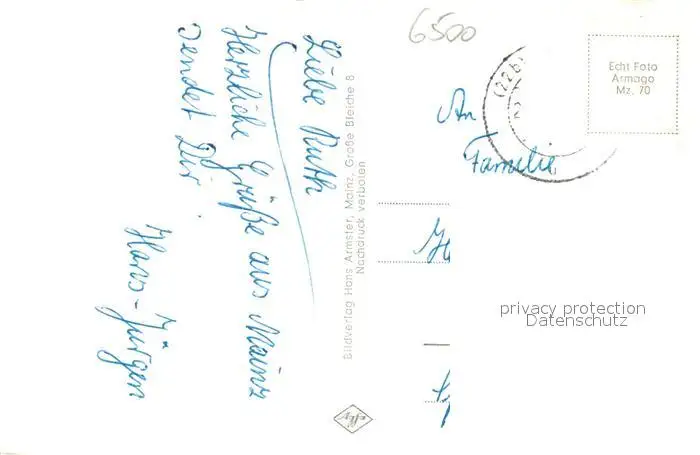 Liebe Ruth
Herzliche Grüße aus Mainz
sendet Dir
Hans-Jürgen
Bildverlag Hans Armster, Mainz, Große Bleiche 8
Nachdruck verboten
6500
(22b)
Echt Foto
Armago
Mz. 70
An
Familie
privacy protection
Datenschutz